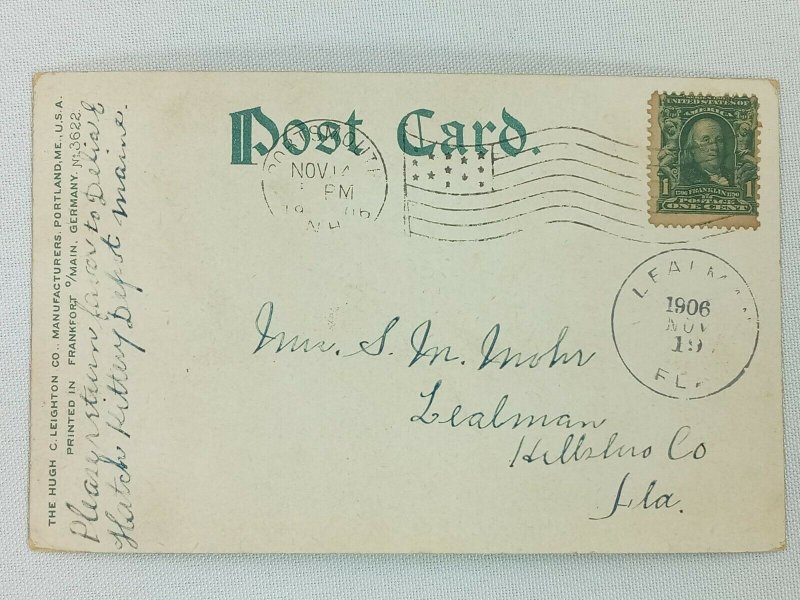 Post Card.
PORTSMOUTH
NOV 14
PM
19 06
N.H.
UNITED STATES OF
AMERICA
1 FRANKLIN 1
POSTAGE
ONE CENT
LEALMAN
1906
NOV
19
FLA
Mrs. S. M. Mohr
Lealman
Hillsboro Co
Fla.
THE HUGH C. LEIGHTON CO., MANUFACTURERS, PORTLAND, ME., U.S.A.
PRINTED IN FRANKFORT o/MAIN, GERMANY. No. 3622.
Please return favor to Delia E
Hatch Kittery Depot Maine.